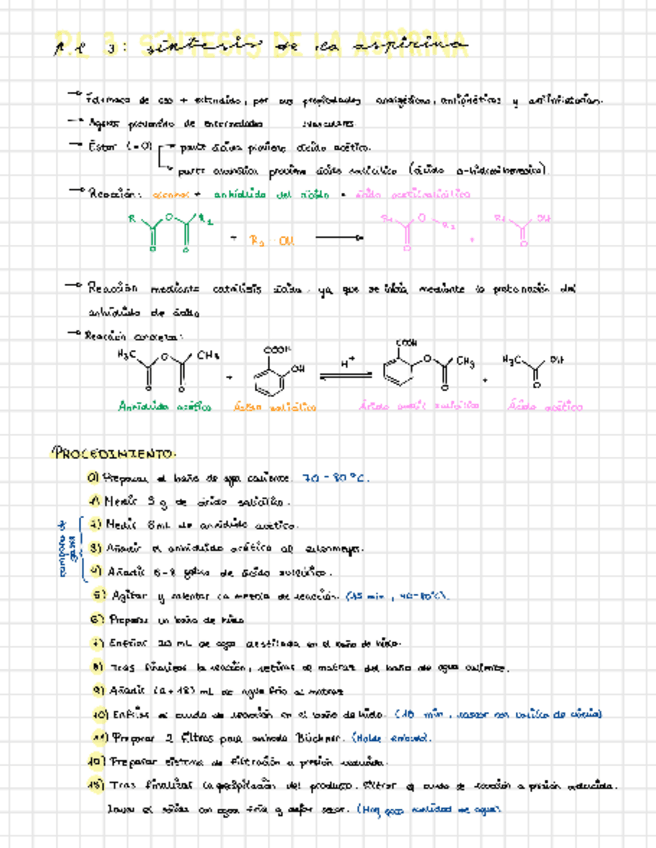 P.L 3: SÍNTESIS DE LA ASPIRINA
→ Fármaco de uso + extendido, por sus propiedades analgésicas, antipiréticas y antiinflamatorias.
→ Agente preventivo de enfermedades vasculares
→ Éster (=O) parte ácida proviene ácido acético.
parte aromática proviene ácido salicílico (ácido o-hidroxibenzoico)
→ Reacción: alcohol + anhídrido del ácido = ácido acetilsalicílico
R O R₁ O O + R₂-OH → R₁ O R₂ O + R₁ OH O
→ Reacción mediante catálisis ácida, ya que se inicia mediante la protonación del
anhídrido de ácido
→ Reacción concreta:
H₃C O CH₃ O O + COOH OH H⁺ COOH O CH₃ O + H₃C OH O
Anhídrido acético Ácido salicílico Ácido acetil salicílico Ácido acético
PROCEDIMIENTO.
0) Preparar el baño de agua caliente. 70-80°C.
1) Medir 3 g de ácido salicílico.
2) Medir 6 mL de anhídrido acético.
3) Añadir el anhídrido acético al erlenmeyer.
4) Añadir 6-8 gotas de ácido sulfúrico.
campana de gases
5) Agitar y calentar la mezcla de reacción. (15 min,
6) Preparar un baño de hielo
7) Enfriar 20 mL de agua destilada en el baño de hielo.
8) Tras finalizar la reacción, retirar el matraz del baño de agua caliente.
9) Añadir mL de agua fría al matraz
10) Enfriar el crudo de reacción en el baño de hielo. (10 min, rascar con varilla de vidrio)
11) Preparar 2 filtros para embudo Büchner. (Molde embudo).
12) Preparar sistema de filtración a presión reducida.
13) Tras finalizar la precipitación del producto. Filtrar el crudo de reacción a presión reducida.
Lavar el sólido con agua fría y dejar secar. (Muy poca cantidad de agua).